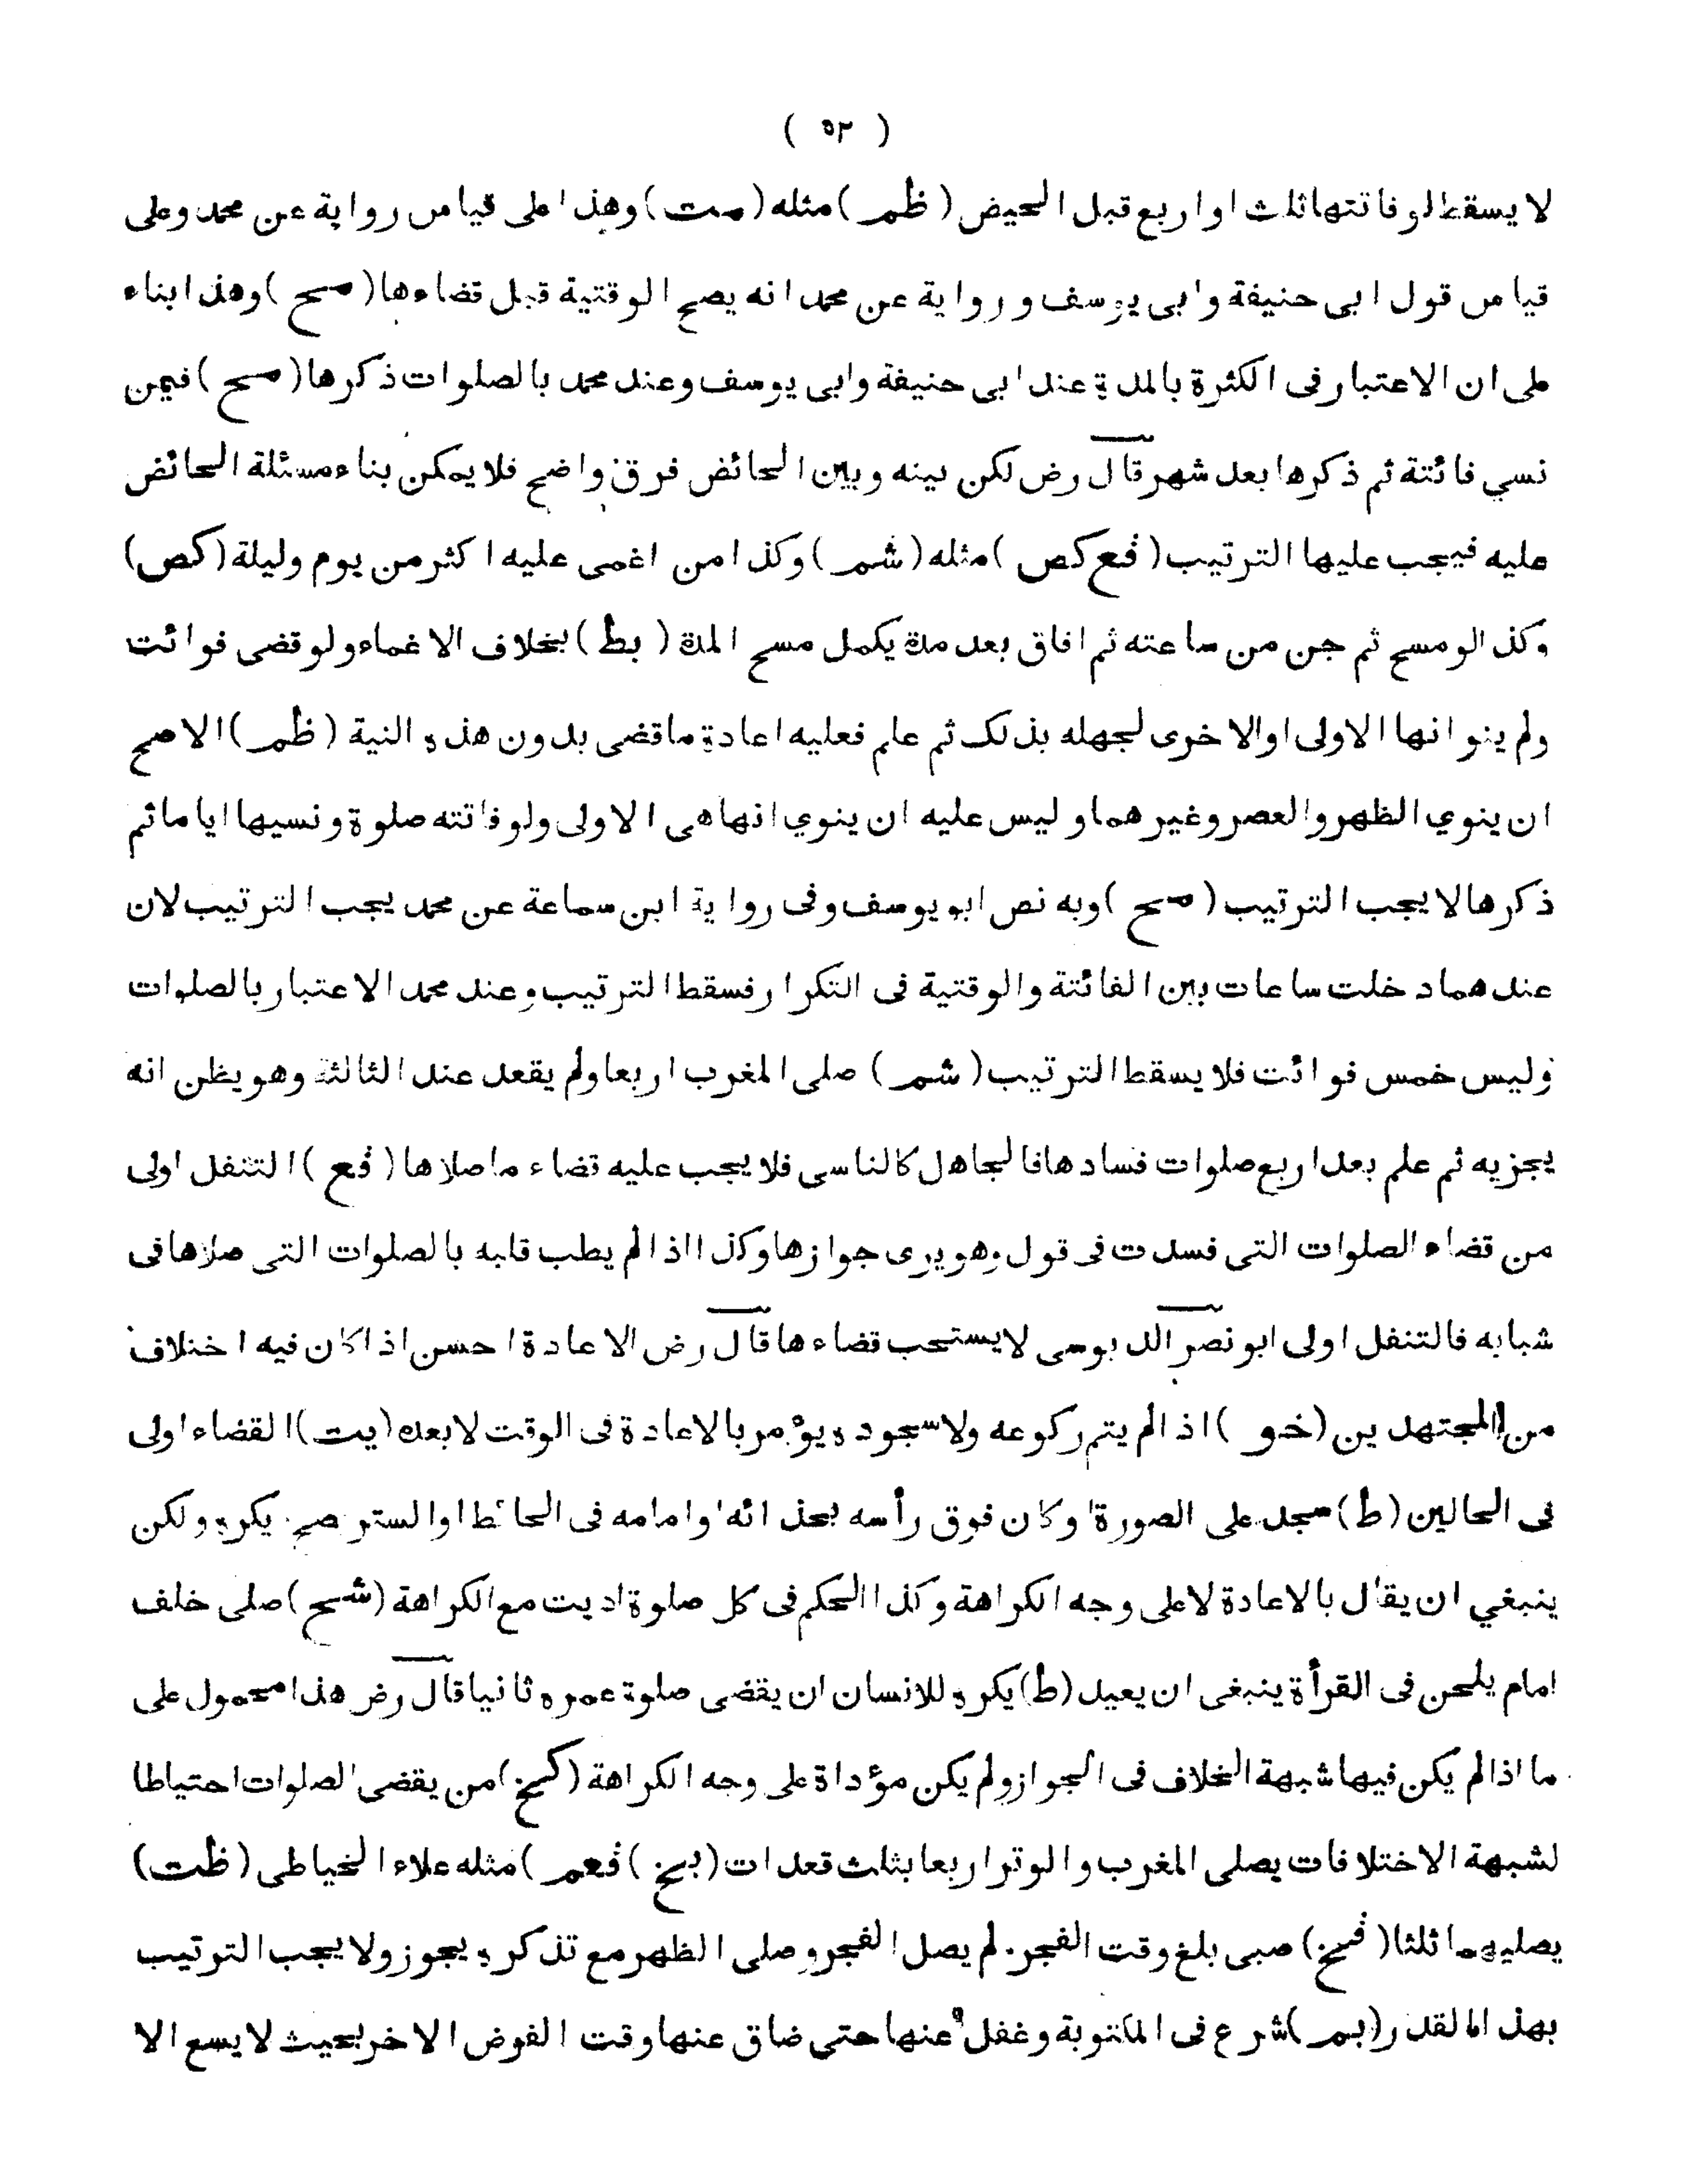 ( ٥٢ )
لا يسقط لو فاتتها ثلث او اربع قبل الحيض ( ظم ) مثله ( مت ) وهذا على قياس رواية عن محمد وعلى
قياس قول ابى حنيفة وابى يوسف و رواية عن محمد انه يصح الوقتية قبل قضاءها ( صح ) وهذا بناء
على ان الاعتبار فى الكثرة بالمدة عند ابى حنيفة وابى يوسف وعند محمد بالصلوات ذكرها ( صح ) فيمن
نسي فائتة ثم ذكرها بعد شهر قال رض لكن بينه وبين الحائض فرق واضح فلا يمكن بناء مسئلة الحائض
عليه فيجب عليها الترتيب ( فع كص ) مثله ( شم ) وكذا من اغمى عليه اكثر من يوم وليلة ( كص )
وكذا لو مسح ثم جن من ساعته ثم افاق بعد مدة يكمل مسح المدة ( بط ) بخلاف الاغماء ولو قضى فوائت
ولم ينو انها الاولى او الاخرى لجهله بذلك ثم علم فعليه اعادة ما قضى بدون هذه النية ( ظم ) الاصح
ان ينوي الظهر والعصر وغيرهما وليس عليه ان ينوي انها هى الاولى ولو فاتته صلوة ونسيها اياما ثم
ذكرها لا يجب الترتيب ( صح ) وبه نص ابو يوسف وفى رواية ابن سماعة عن محمد يجب الترتيب لان
عندهما دخلت ساعات بين الفائتة والوقتية فى التكرار فسقط الترتيب وعند محمد الاعتبار بالصلوات
وليس خمس فوائت فلا يسقط الترتيب ( شم ) صلى المغرب اربعا ولم يقعد عند الثالثة وهو يظن انه
يجزيه ثم علم بعد اربع صلوات فسادها فالجاهل كالناسى فلا يجب عليه قضاء ما صلاها ( فع ) التنفل اولى
من قضاء الصلوات التى فسدت فى قول وهو يرى جوازها وكذا اذا لم يطب قلبه بالصلوات التى صلاها فى
شبابه فالتنفل اولى ابو نصر الدبوسى لا يستحب قضاءها قال رض الاعادة احسن اذا كان فيه اختلاف
من المجتهدين ( خو ) اذا لم يتم ركوعه ولا سجوده يؤمر بالاعادة فى الوقت لا بعده ( يت ) القضاء اولى
فى الحالين ( ط ) سجد على الصورة او كان فوق رأسه بحذائه او امامه فى الحائط او الستر صح يكره ولكن
ينبغي ان يقال بالاعادة لا على وجه الكراهة وكذا الحكم فى كل صلوة اديت مع الكراهة ( شح ) صلى خلف
امام يلحن فى القرأة ينبغى ان يعيد ( ط ) يكره للانسان ان يقضى صلوة عمره ثانيا قال رض هذا محمول على
ما اذا لم يكن فيها شبهة الخلاف فى الجواز ولم يكن مؤداة على وجه الكراهة ( كخ ) من يقضى الصلوات احتياطا
لشبهة الاختلافات يصلى المغرب والوتر اربعا بثلث قعدات ( بخ ) فعم ) مثله علاء الخياطى ( ظت )
يصليهما ثلثا ( فخ ) صبى بلغ وقت الفجر لم يصل الفجر وصلى الظهر مع تذكره يجوز ولا يجب الترتيب
بهذا القدر ( بم ) شرع فى المكتوبة وغفل عنها حتى ضاق عنها وقت الفرض الاخر بحيث لا يسع الا